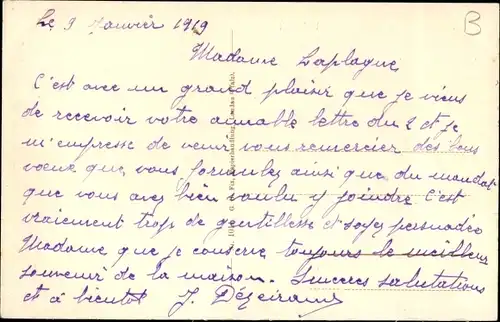 Le 9 Janvier 1919
B
Madame Laplague
C'est avec un grand plaisir que je viens
de recevoir votre aimable lettre du 2 et je
m'empresse de venir vous remercier des bons
voeux que vous formulez ainsi que du mandat
que vous avez bien voulu y joindre C'est
vraiment trop de gentillesse et soyez persuadée
Madame que je conserve toujours le meilleur
souvenir de la maison. Sinceres salutations
et à bientot J.